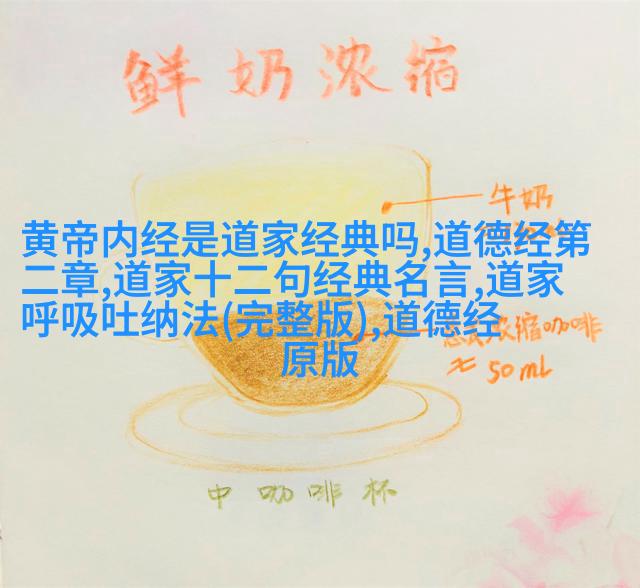 鲜奶浓缩
牛奶
黄帝内经是道家经典吗,道德经第
二章,道家十二句经典名言,道家
呼吸吐纳法(完整版),道德经
原版
浓缩咖啡
≈ 50ml
中咖啡杯